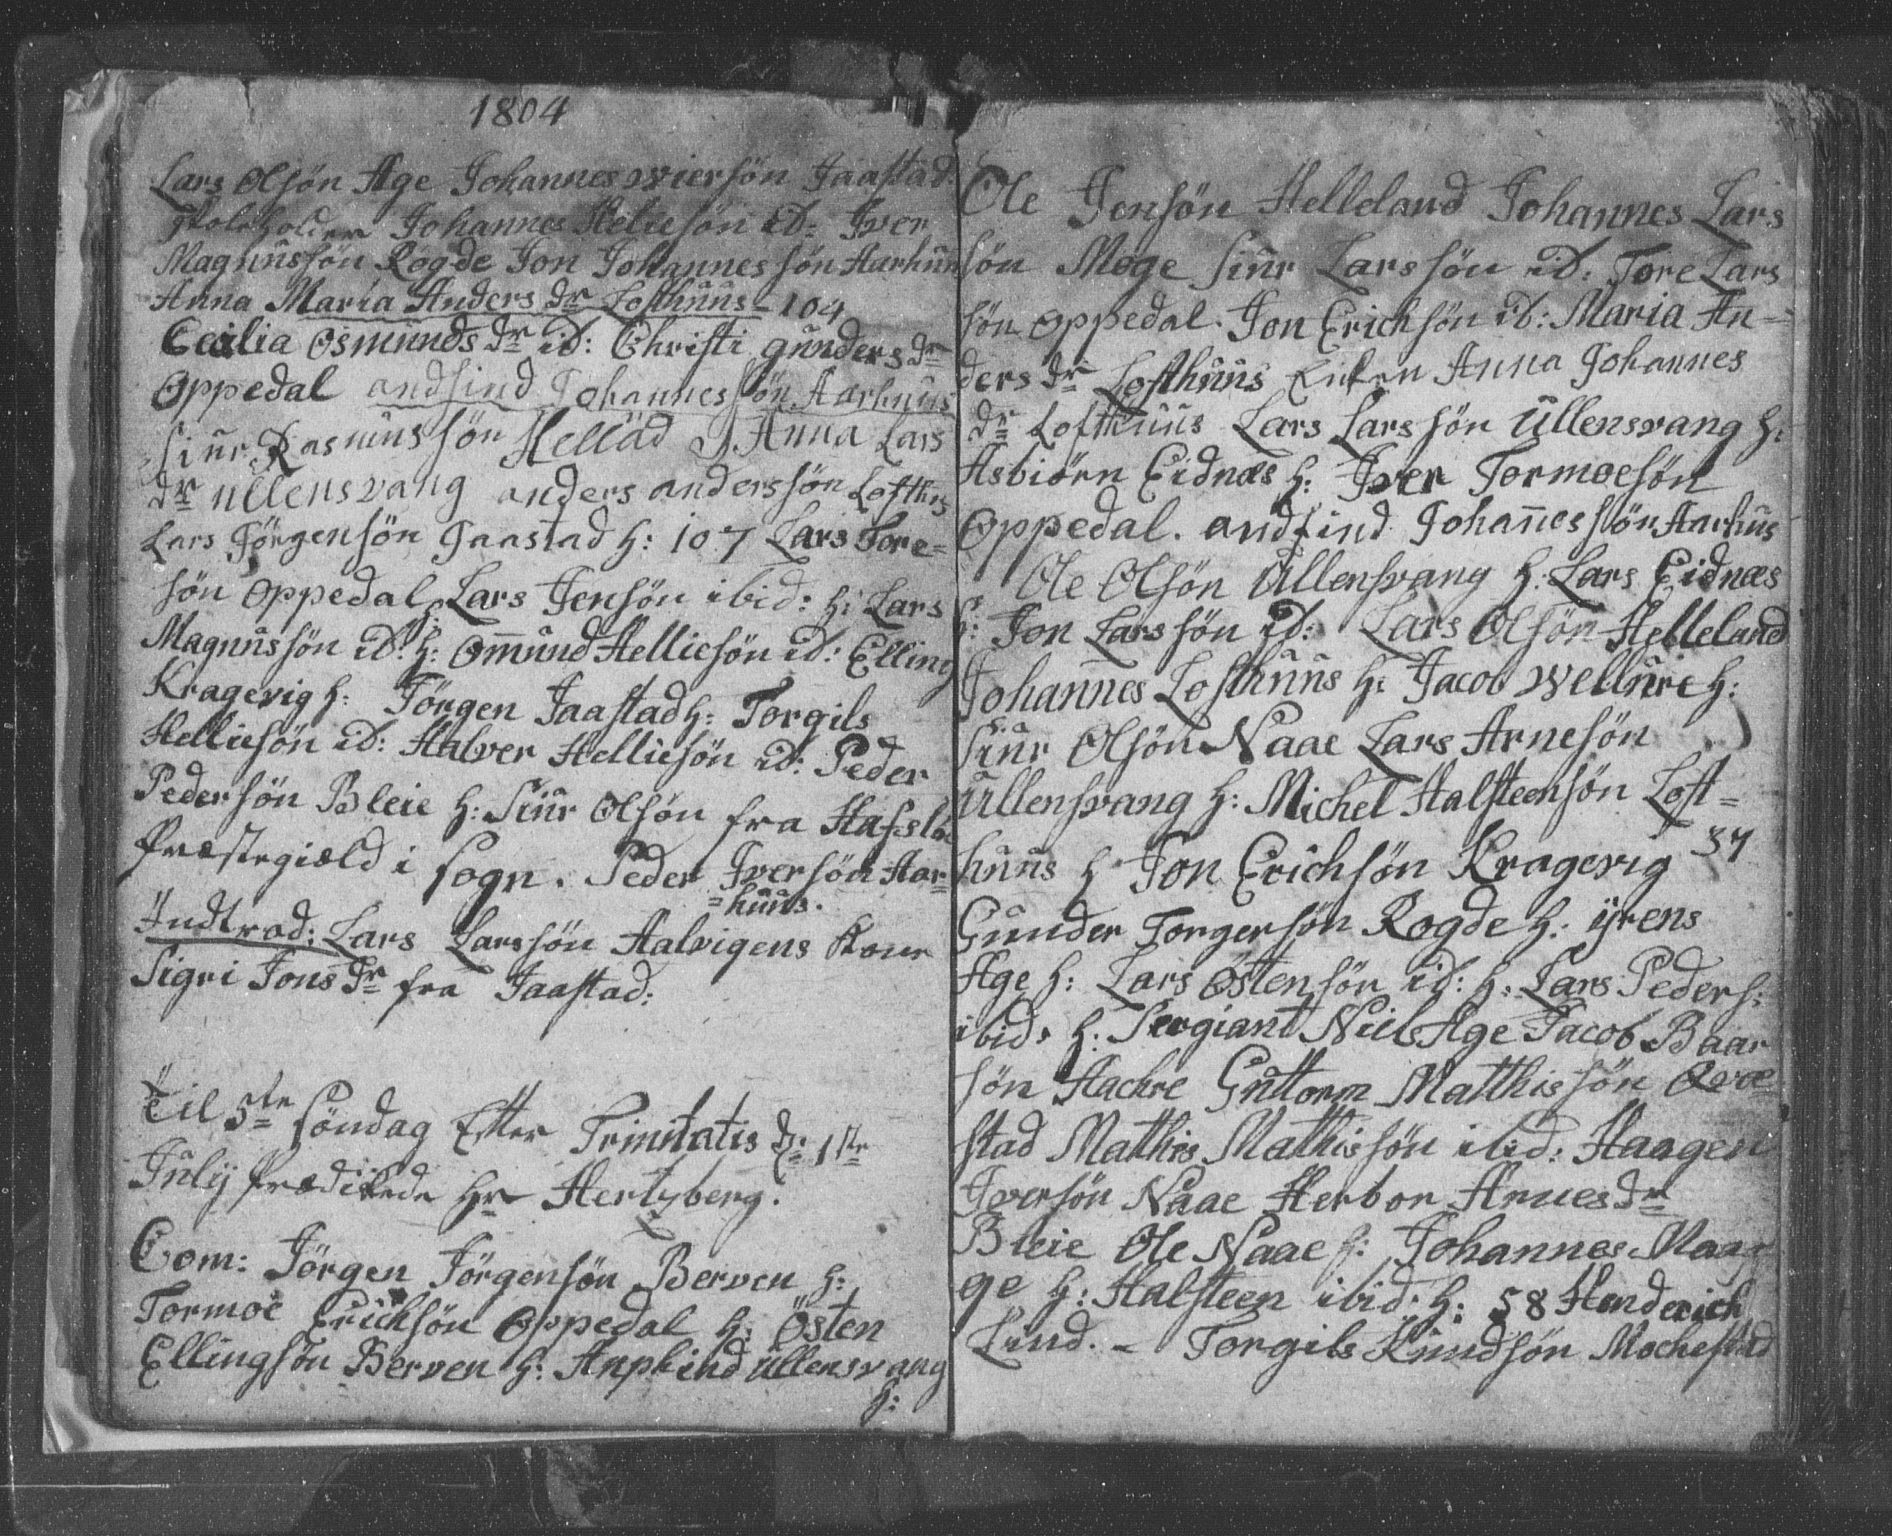 1804
Lars Olsön Age Johannes wiersön Jaastad
skoleholder Johannes Heliesön id: Iver
Magnussön Rogde Jon Johannessön Aarhuus
Anna Maria Anders dr Lofthuus - 104
Cecilia Osmunds dr id: Christi gunders dr
Oppedal andfind Johannessön Aarhuus
Siur Rasmussön Hellad Anna Lars
dr ullensvang anders anderssön Lofthus
Lars Jörgensön Jaastad h: 107 Lars Tore=
sön Oppedal h: Lars Jensön ibid: h: Lars
Magnussön id: h: Omund Helliesön id: Elling
Kragevig h: Törgen Jaastad h: Torgils
Helliesön id: Halver Helliesön id: Peder
Pedersön Bleie h: Siur Olsön fra Hafslo
Præstegiæld i Sogn. Peder Iversön Aar=
=huus.
Indtrad: Lars Larssön Aalvigens Kone
Sigri Jons dr fra Jaastad:
Til 5te Söndag Efter Trinitatis d: 1ste
July Prædikede Hr Hertzberg.
Com: Jörgen Jörgensön Berven h:
Tormoe Erichsön Oppedal h: Östen
Ellingsön Berven h: Anphind ullensvang
h:
Ole Jensön Helleland Johannes Lars
sön Moge Siur Larssön id: Tore Lars
sön Oppedal. Jon Erichsön id: Maria An-
ders dr Lofthuus Enken Anna Johannes
dr Lofthuus Lars Larssön Ullensvang h:
Asbiörn Eidnæs h: Iver Tormoesön
Oppedal. andfind Johannessön Aarhus
Ole Olsön Ullensvang h: Lars Eidnæs
h: Jon Larssön id: Lars Olsön Helleland
Johannes Lofthuus h: Jacob Wellure h:
Siur Olsön Naae Lars Arnesön
Ullensvang h: Michel Halsteensön Loft=
huus h Jon Erichsön Kragevig 37
Gunder Torgersön Rogde h: ijrens
Age h: Lars Östensön id: h: Lars Peders:
ibid: h: Sergiant Niels Age Jacob Baar
sön Hachre Guttorm Matthissön Qvæ
stad Mathis Mathissön ibid: Haagen
Iversön Naae Herbor Arnes dr
Bleie Ole Naae h: Johannes Maa
ge h: Halsteen ibid: h: 58 Henderich
Lund. - Torgils Knudsön Mochestad